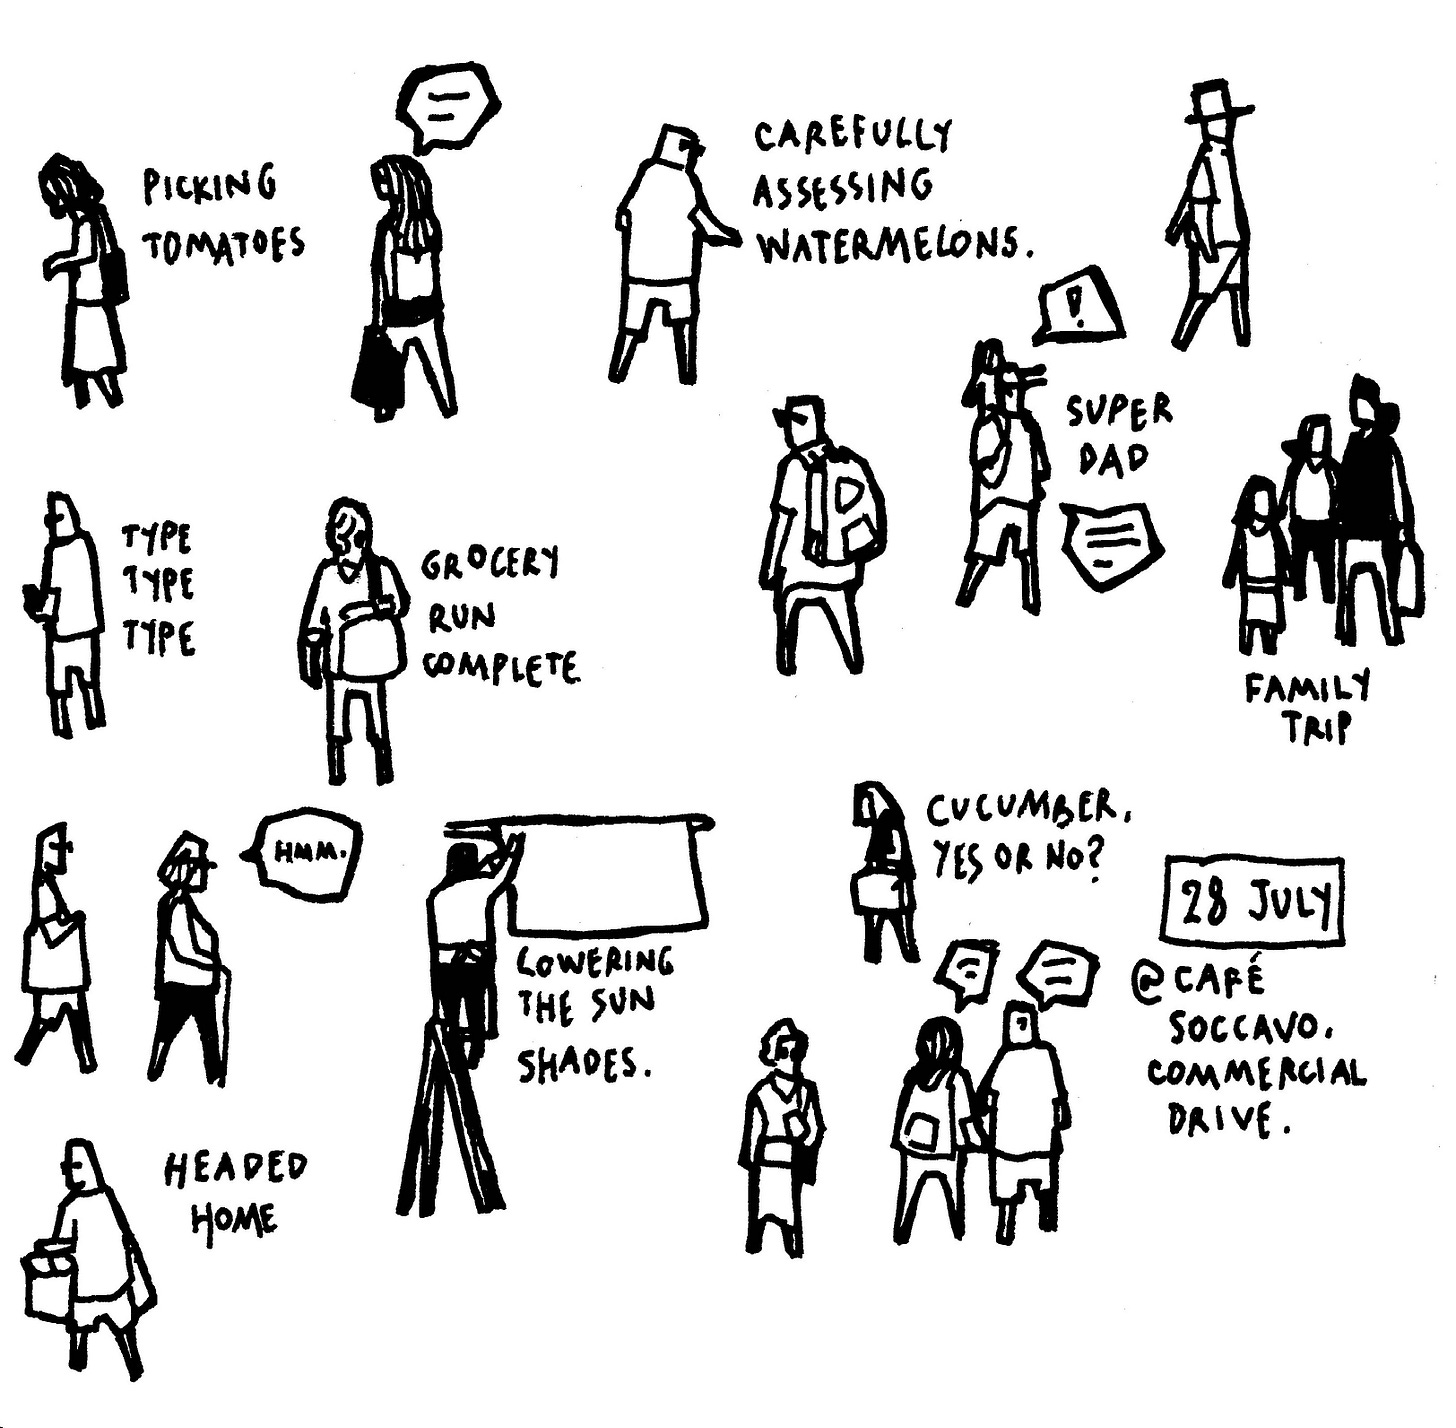 PICKING
TOMATOES
CAREFULLY
ASSESSING
WATERMELONS.
!
SUPER
DAD
TYPE
TYPE
TYPE
GROCERY
RUN
COMPLETE
FAMILY
TRIP
HMM.
LOWERING
THE SUN
SHADES.
CUCUMBER,
YES OR NO?
28 JULY
@ CAFÉ
SOCCAVO.
COMMERCIAL
DRIVE.
HEADED
HOME